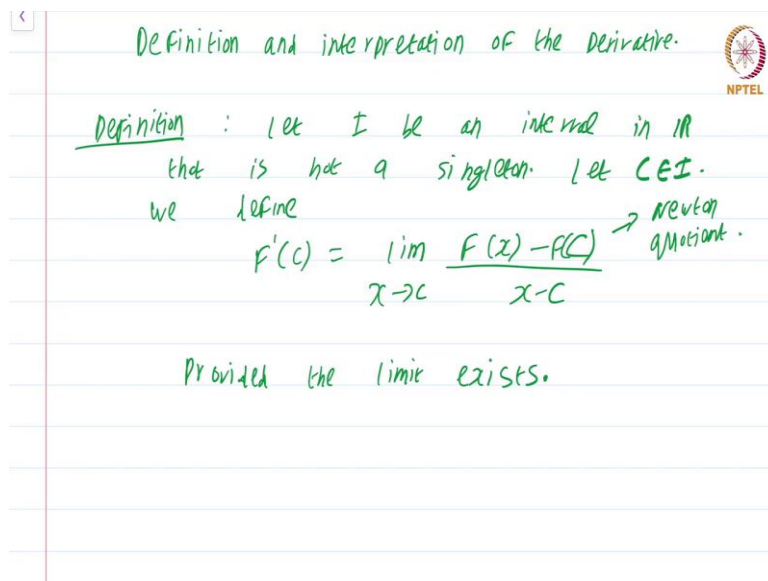 Definition and interpretation of the Derivative.
NPTEL
Definition : let I be an interval in ℝ
that is not a singleton. let C∈I.
we define
F'(c) = lim x→c F(x)-F(C) / x-C → Newton quotient.
Provided the limit exists.